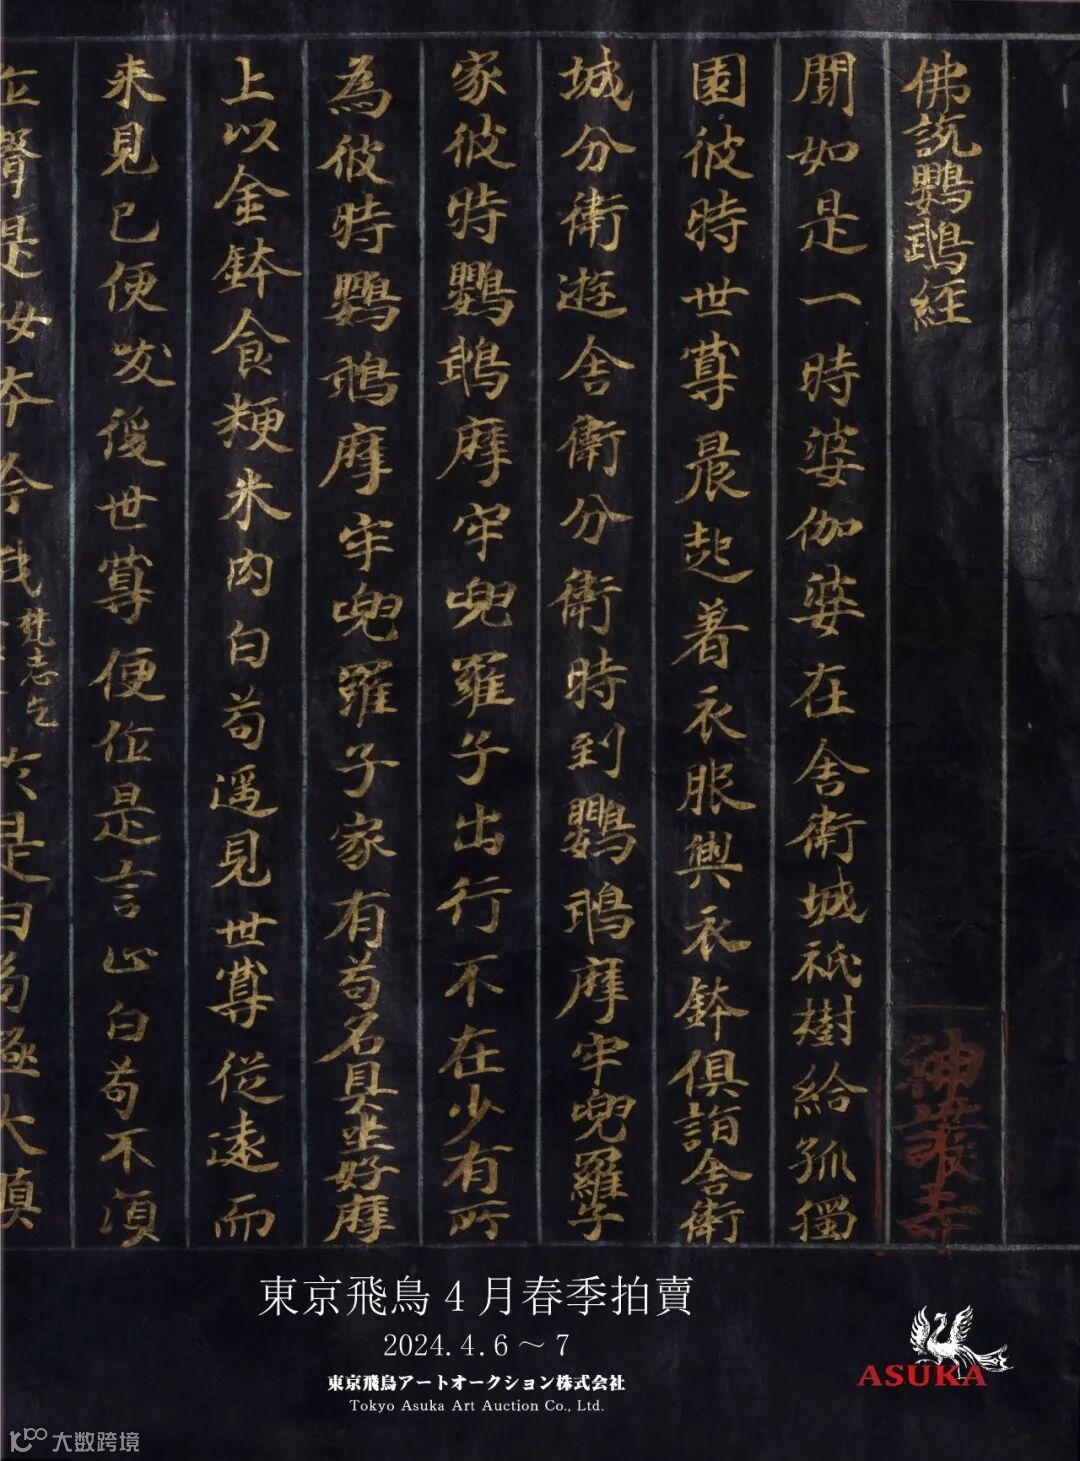 佛説鸚鵡經
聞如是一時婆伽婆在舍衛城祇樹給孤獨
園彼時世尊晨起着衣服與衣鉢俱詣舍衛
城分衛遊舍衛分衛時到鸚鵡摩牢兜羅子
家彼時鸚鵡摩牢兜羅子出行不在少有所
為彼時鸚鵡摩牢兜羅子家有苟名具坐好蓐
上以金鉢食粳米肉白苟遥見世尊從遠而
来見已便吠後世尊便作是言止白苟不須
是汝本吟我梵志乞於是白苟極大瞋
神護寺
東京飛鳥4月春季拍賣
2024.4.6～7
東京飛鳥アートオークション株式会社
Tokyo Asuka Art Auction Co., Ltd.
ASUKA
大数跨境